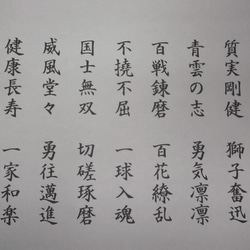 質実剛健
青雲の志
百戦錬磨
不撓不屈
国士無双
威風堂々
健康長寿
獅子奮迅
勇気凛凛
百花繚乱
一球入魂
切磋琢磨
勇往邁進
一家和楽